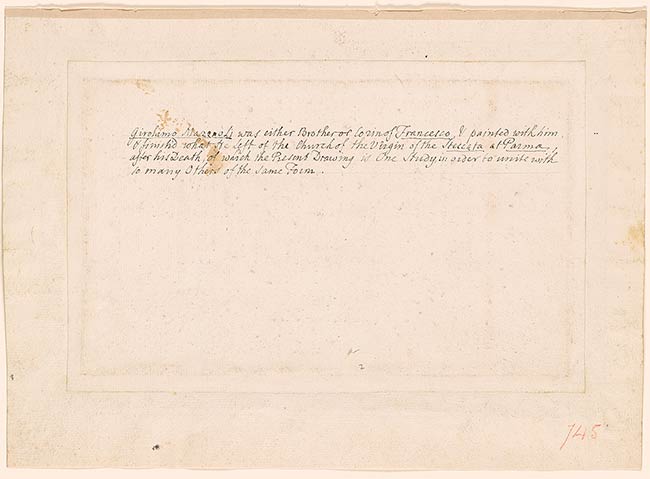 Girolamo Mazzoli was either Brother or Cozin of Francesco, & painted with him,
& finish'd what He left of the Church of the Virgin of the Steccata at Parma,
after his Death, of which the Present Drawing is One Study, in order to unite with
so many Others of the same Form.
745